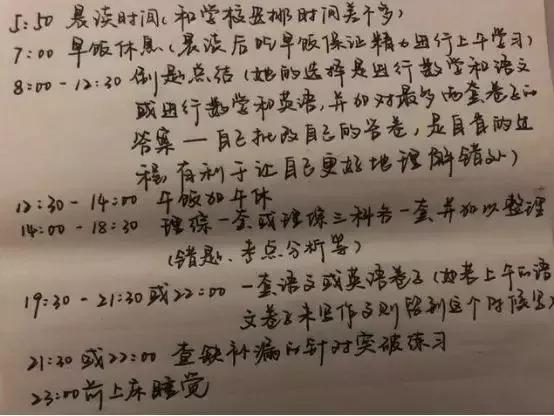 5:50 晨读时间(和学校安排时间差不多)
7:00 早饭休息(晨读后吃早饭保证精力进行上午学习)
8:00-12:30 例题总结(她的选择是进行数学和语文
或进行数学和英语,并加对最多两套卷子的
答案一自己批改自己的答卷,是自省的过
程,有利于让自己更好地理解错处)
12:30-14:00 午饭加午休
14:00-18:30 理综一套或理综三科各一套并加以整理
(错题、考点分析等)
19:30-21:30或22:00 一套语文或英语卷子(如若上午的语
文卷子未写作文则留到这个时候写)
21:30或22:00 查缺补漏的针对突破练习
23:00前上床睡觉